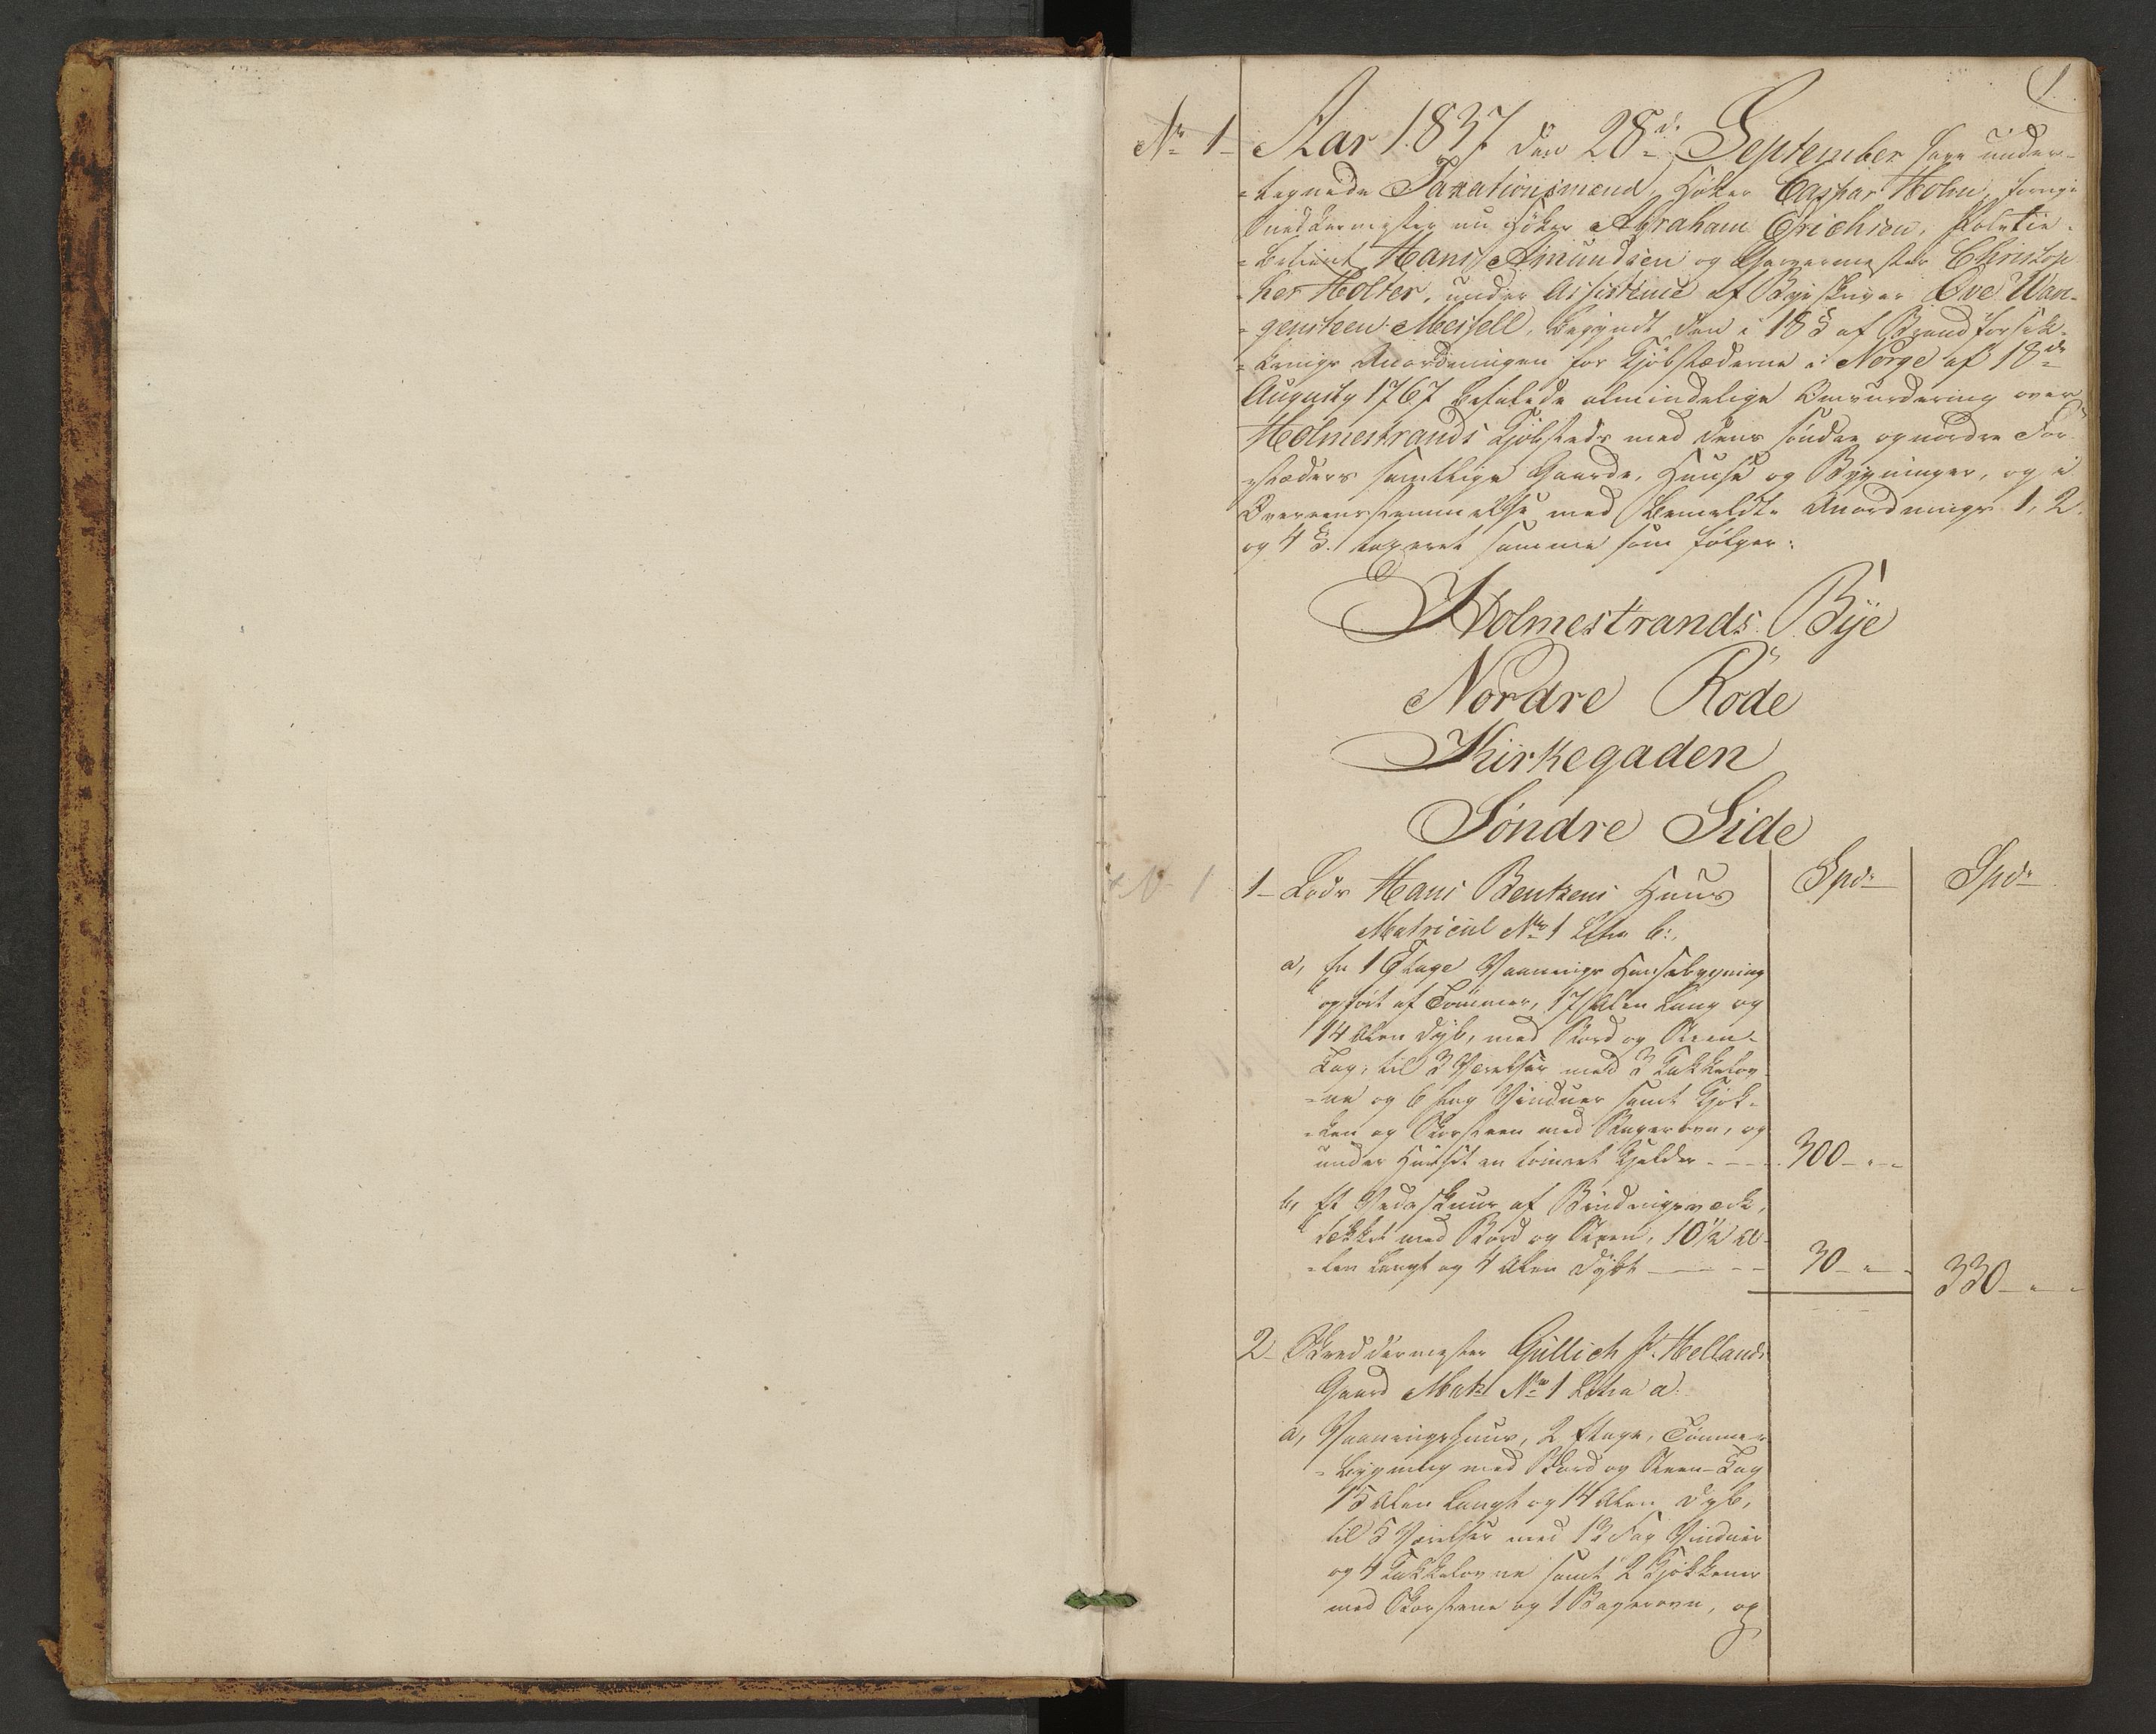 1.
No 1 Aar 1837 den 28de September have under-
-tegnede Taxationsmænd, Høker Caspar Holm, forrige
Snedkermester nu Høker Abraham Erichsen, Politie-
-betient Hans Amundsen og Garvermester Christop
-her Holter, under Assistence af Byeskriver Ove Wan-
-gensteen Meisell, begyndt den i 18 § af Brandforsik-
-krings Anordningen for Kjøbstæderne i Norge af 18de
Augusty 1767 befalede almindelige Omvurdering over
Holmestrands Kjøbsteds med dens søndre og nordre For-
-stæders samtlige Gaarde, Huuse og Bygninger, og i
Overeensstemmelse med bemeldte Anordnings 1, 2
og 4 §. taxeret samme som følger:
Holmestrands Bÿe
Nordre Rode
Kirkegaden
Søndre Side
No 1
1- Lods Hans Bentzens Huus Spd. Spd.
Matricul No 1 Litra b.
a, En 1 Etage Vaanings Huusebygning
opført af Tømmer, 17 Alen lang og
14 Alen dyb, med Bord og Steen-
Tag, til 3 Værelser med 3 Kakkelov-
-ne og 6 Fag Vinduer samt Kjøk-
-ken og Skorsteen med Bagerovn, og
under Huuset en tømret Kjelder - - - 300 - " -
b, Et Vedeskuur af Bindingsværk,
tækket med Bord og Steen, 10 1/2 A-
-len langt og 4 Alen dybt - - - 30 - " - 330 - " -
2- Skreddermester Gullich J. Hellands
Gaard Matr No 1 Litra a.
a, Vaaningshuus, 2 Etage, Tømmer
-bygning med Bord og Steen-Tag
15 Alen langt og 14 Alen dyb,
til 5 Værelser med 13 Fag Vinduer
og 4 Kakkelovne samt 2 Kjøkkener
med Skorstene og 1 Bagerovn, og